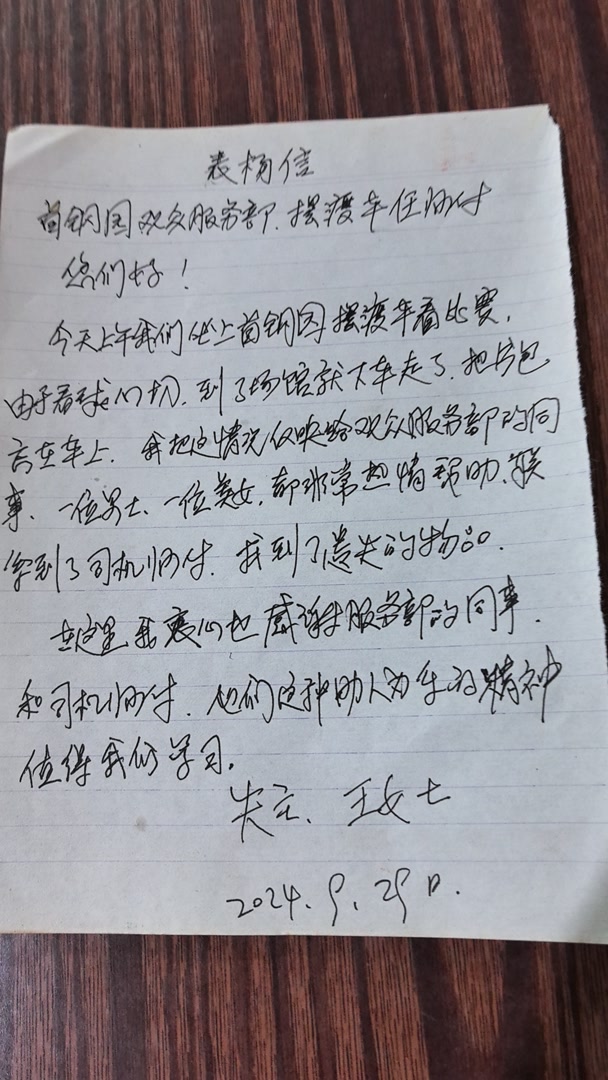 表扬信
首钢园观众服务部、摆渡车任师付
您们好！
今天上午我们坐上首钢园摆渡车看比赛,
由于看球心切,到了场馆就下车走了,把书包
丢在车上,我把这情况反映给观众服务部的同
事、一位男士、一位美女,都非常热情帮助、联
系到了司机师付,找到了遗失的物品.
在这里我衷心地感谢服务部的同事,
和司机师付,他们这种助人为乐的精神
值得我们学习.
失主、王女士
2024.9.29日.